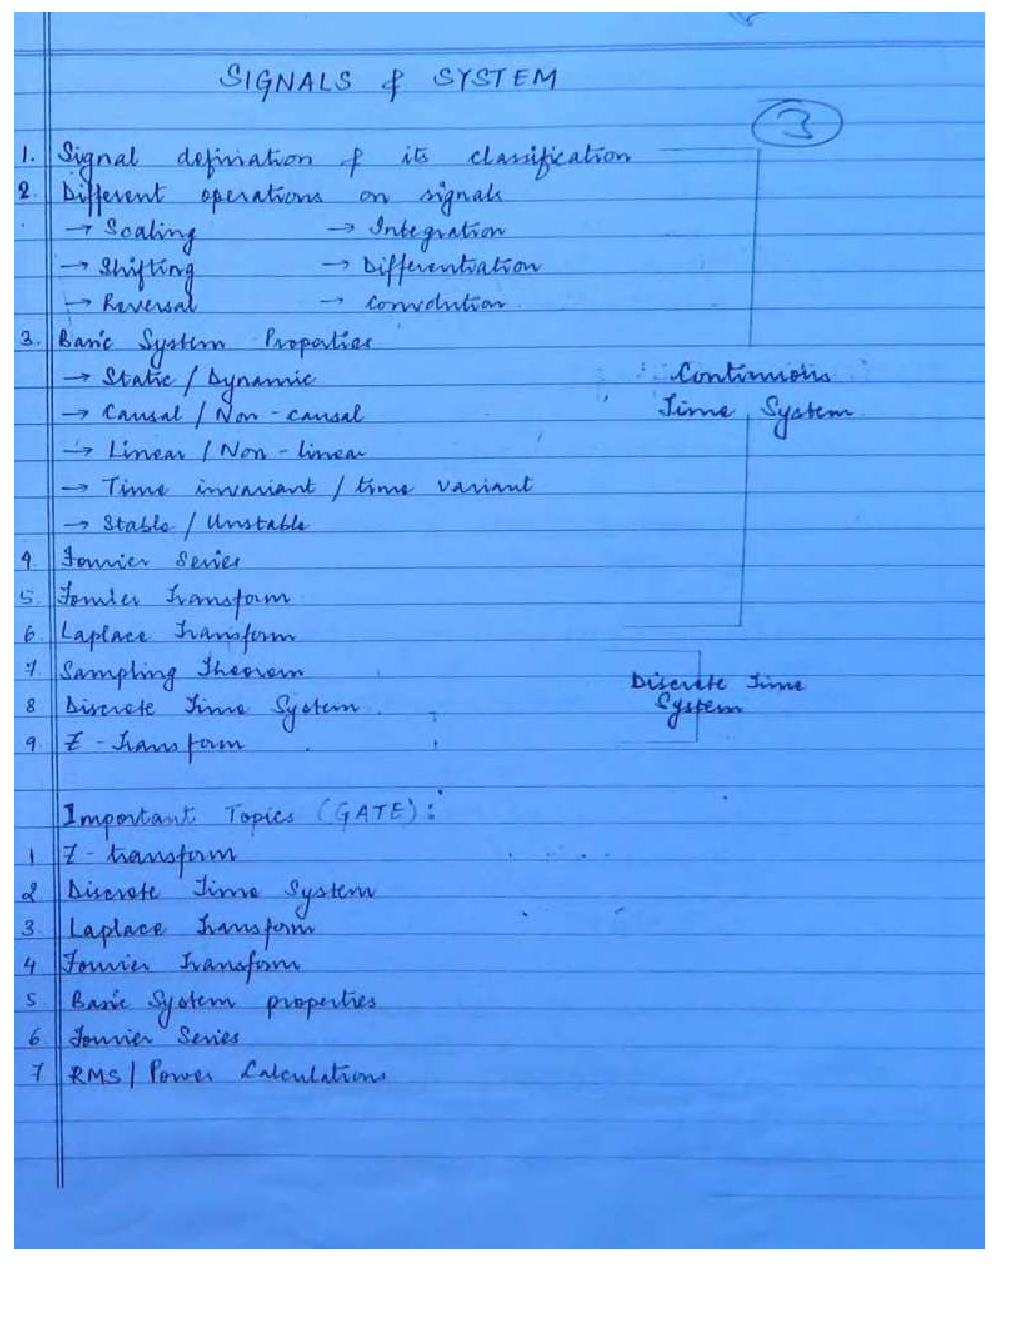 SIGNALS & SYSTEM
3
1. Signal definiation & its classification
2. Different operations on signals
→ Scaling → Integration
→ Shifting → Differentiation
→ Reversal → Convolution
3. Basic System Properties
→ Static / Dynamic
Continuous
→ Causal / Non-causal
Time System
→ Linear / Non-linear
→ Time invariant / time variant
→ Stable / Unstable
4. Fourier Series
5. Fourier Transform
6. Laplace Transform
7. Sampling Theorem
Discrete Time
8 Discrete Time System
System
9. Z-Transform
Important Topics (GATE):
1 Z-transform
2 Discrete Time System
3. Laplace Transform
4 Fourier Transform
5 Basic System properties
6 Fourier Series
7 RMS / Power Calculations